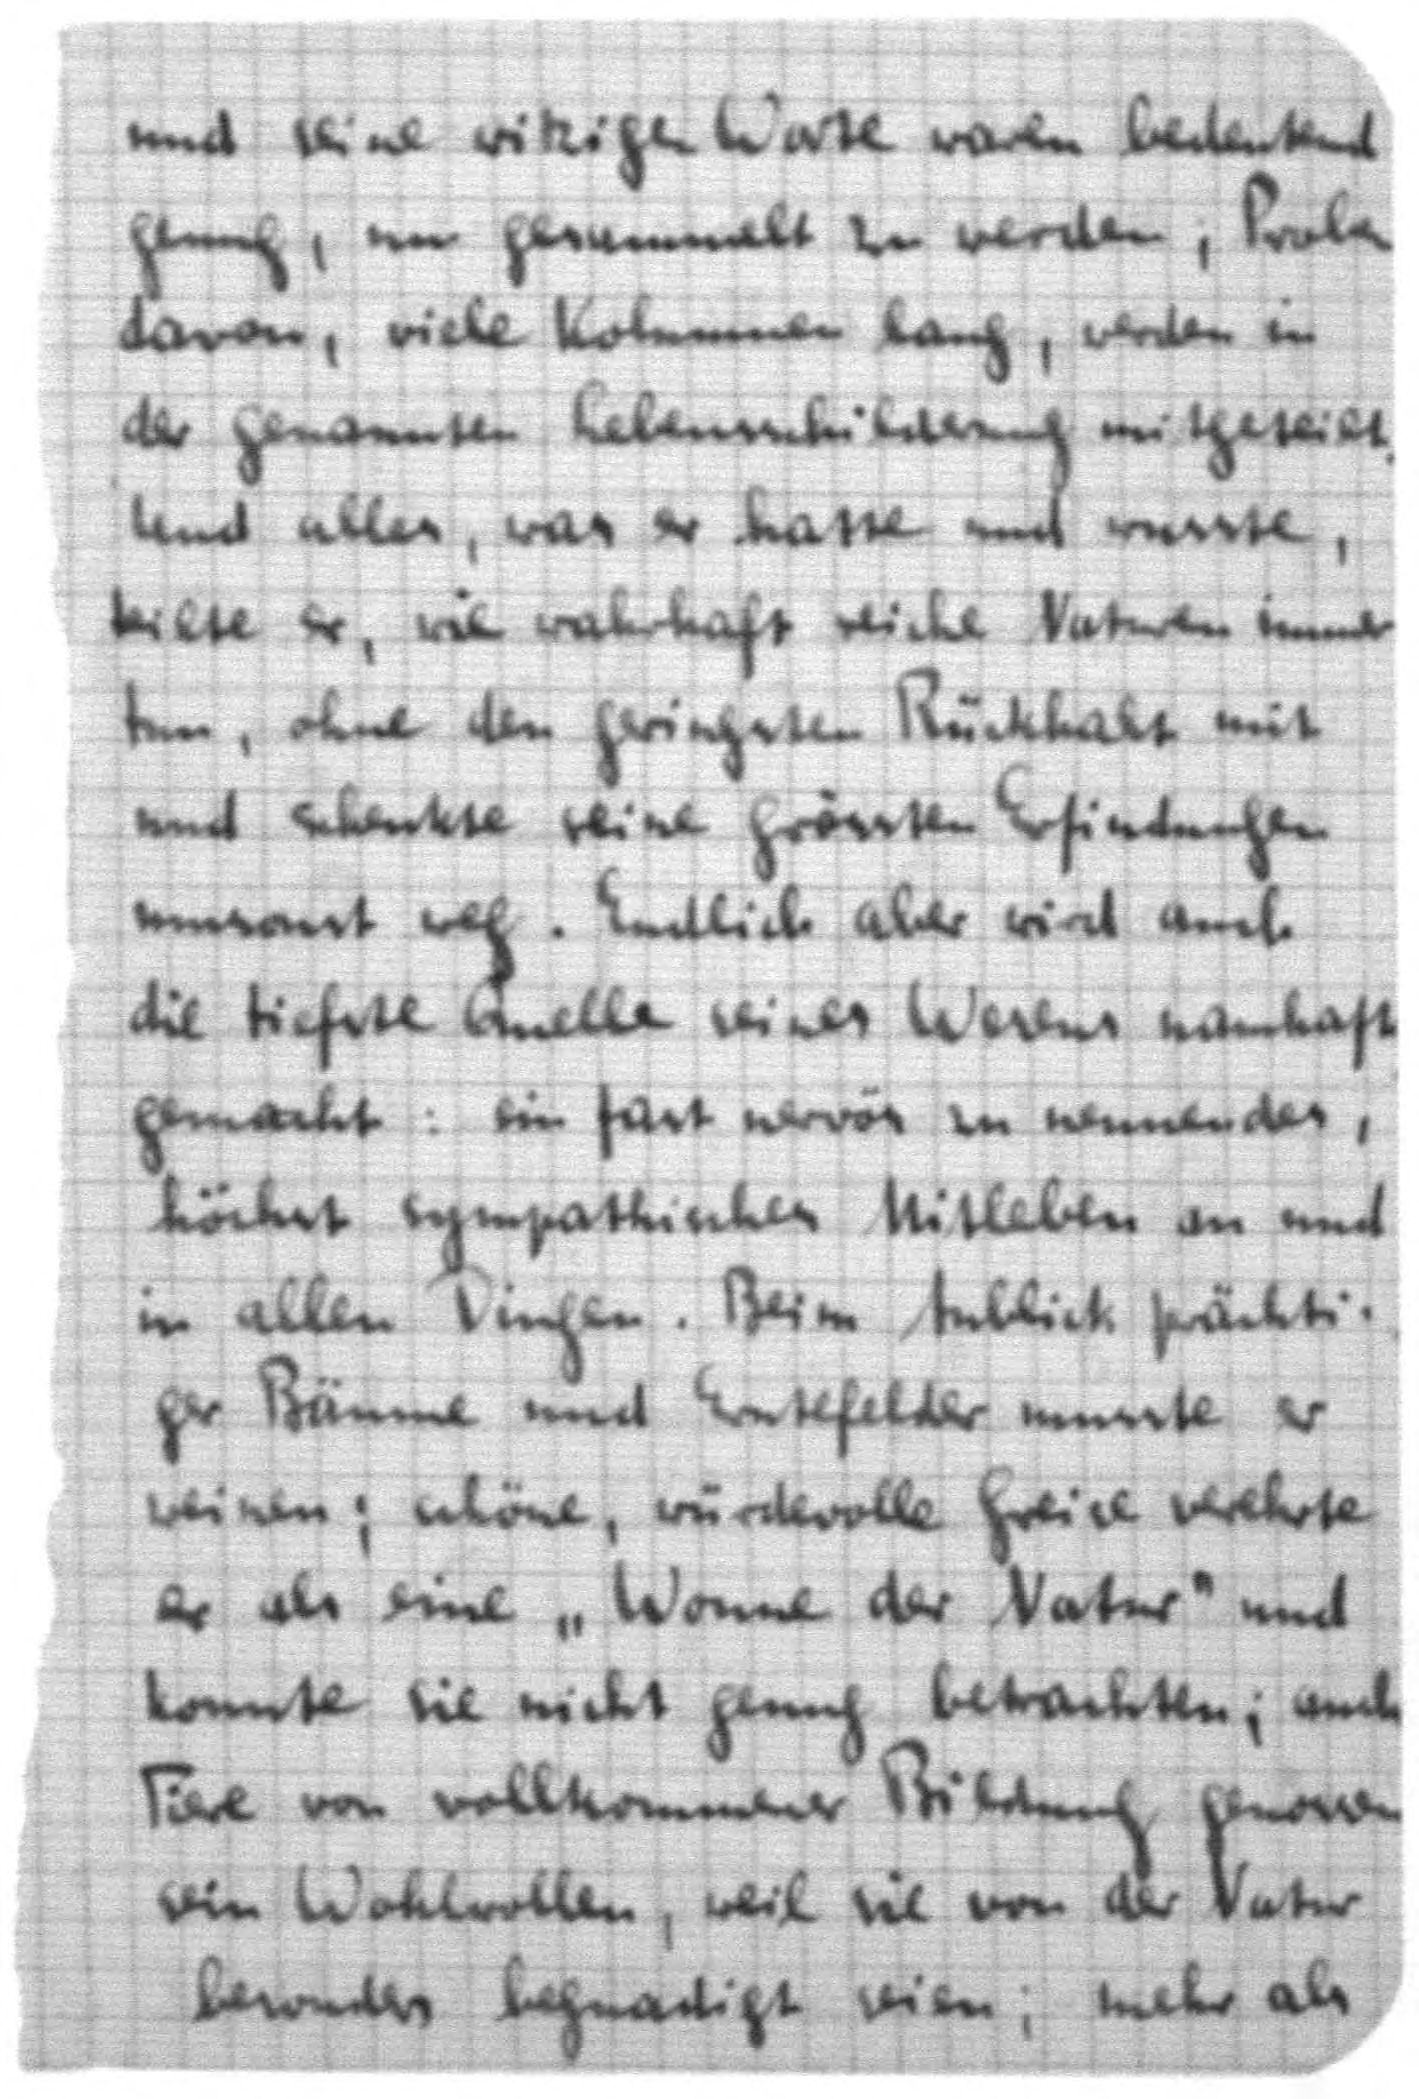 und seine witzigen Worte waren bedeutend
genug, um gesammelt zu werden; Proben
davon, viele Kolumnen lang, werden in
der genannten Lebensschilderung mitgeteilt.
Und alles, was er hatte und wusste,
teilte er, wie wahrhaft reiche Naturen immer
tun, ohne den geringsten Rückhalt mit
und schenkte seine grössten Erfindungen
umsonst weg. Endlich aber wird auch
die tiefste Quelle seines Wesens namhaft
gemacht: ein fast nervös zu nennendes,
höchst sympathisches Mitleben an und
in allen Dingen. Beim Anblick prächti-
ger Bäume und Erntefelder musste er
weinen; schöne, würdevolle Greise verehrte
er als eine „Wonne der Natur" und
konnte sie nicht genug betrachten; auch
Tiere von vollkommener Bildung genossen
sein Wohlwollen, weil sie von der Natur
besonders begnadigt seien; mehr als